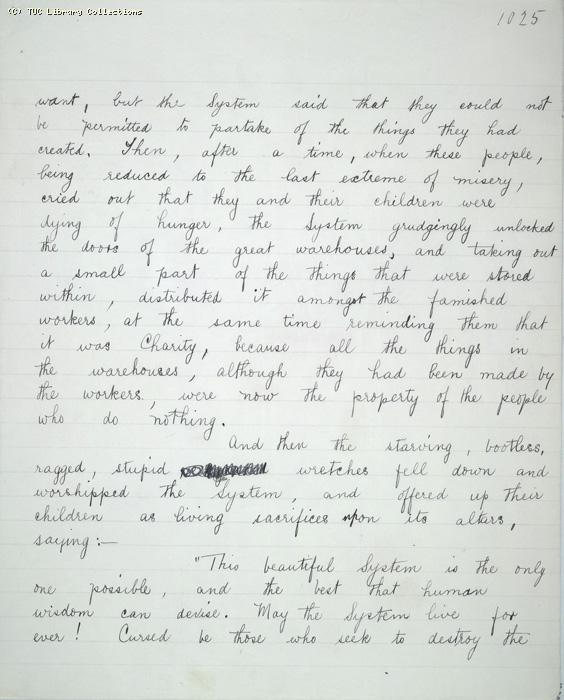 (C) TUC Library Collections
1025
want, but the System said that they could not
be permitted to partake of the things they had
created. Then, after a time, when these people,
being reduced to the last extreme of misery,
cried out that they and their children were
dying of hunger, the System grudgingly unlocked
the doors of the great warehouses, and taking out
a small part of the things that were stored
within, distributed it amongst the famished
workers, at the same time reminding them that
it was Charity, because all the things in
the warehouses, although they had been made by
the workers, were now the property of the people
who do nothing.
And then the starving, bootless,
ragged, stupid wretches fell down and
worshipped the System, and offered up their
children as living sacrifices upon its altars,
saying:—
"This beautiful System is the only
one possible, and the best that human
wisdom can devise. May the System live for
ever! Cursed be those who seek to destroy the